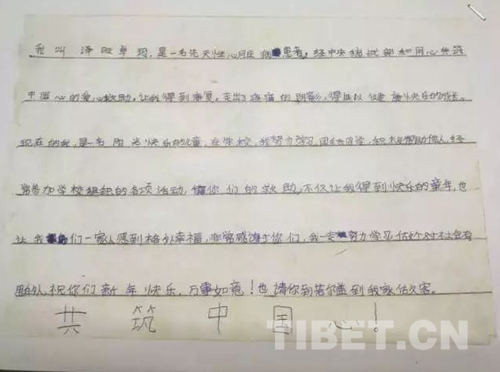 我叫泽仁卓玛，是一名先天性心脏病患者，经中央统战部和同心共筑
中国心的爱心救助，让我得到康复，走出了疼痛的阴影，得以健康快乐的成长。
现在的我，是一名阳光快乐的儿童，在学校，我努力学习，团结同学，积极帮助他人，经
常参加学校组织的各项活动，你们的救助，不仅让我得到快乐的童年，也
让我们一家人感到格外幸福，非常感谢你们，我一定努力学习做个对社会有
用的人，祝你们新年快乐，万事如意！也请你到若尔盖到我家做客。
共筑中国心！
TIBET.CN